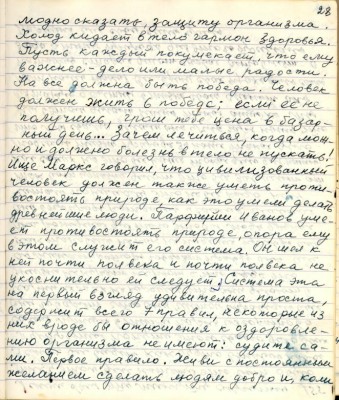 28
модно сказать, защиту организма.
Холод кидает в тело гармон здоровья.
Пусть каждый покумекает, что ему
важнее - дело или малые радости.
На все должна быть победа. Человек
должен жить в победе; если ее не
получишь, грош тебе цена в базар-
ный день... Зачем лечиться, когда мож-
но и должно болезнь в тело не пускать!
Ище Маркс говорил, что цивилизованный
человек должен также уметь проти-
востоять природе, как это умели делать
древнейшие люди. Парфирий Иванов уме-
ет противостоять природе, опора ему
в этом служит его система. Он шел к
ней почти полвека и почти полвека не-
укоснительно ей следует. Система эта
на первый взгляд удивительна проста,
содержит всего 7 правил, некоторые из
них вроде бы отношения к оздоровле-
нию организма не имеют: судите са-
ми. Первое правило. Живи с постоянным
желанием сделать людям добро и, коли